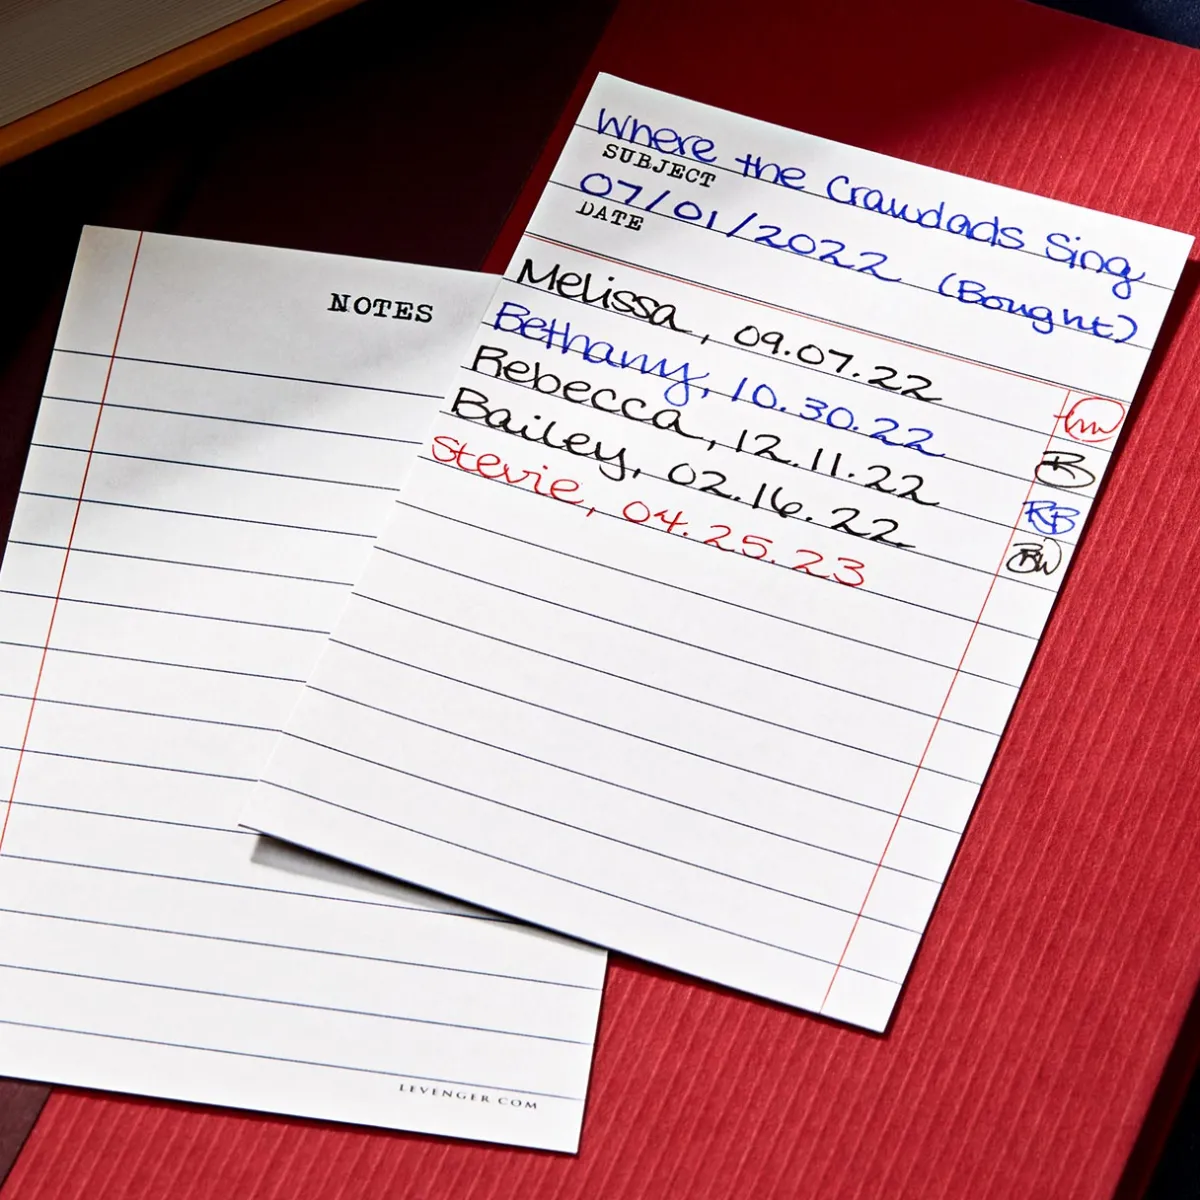 Where the Crawdads Sing
SUBJECT
07/01/2022 (Bought)
DATE
Melissa, 09.07.22
Bethany, 10.30.22
B
Rebecca, 12.11.22
RB
Bailey, 02.16.22
BW
Stevie, 04.25.23
NOTES
LEVENGER.COM